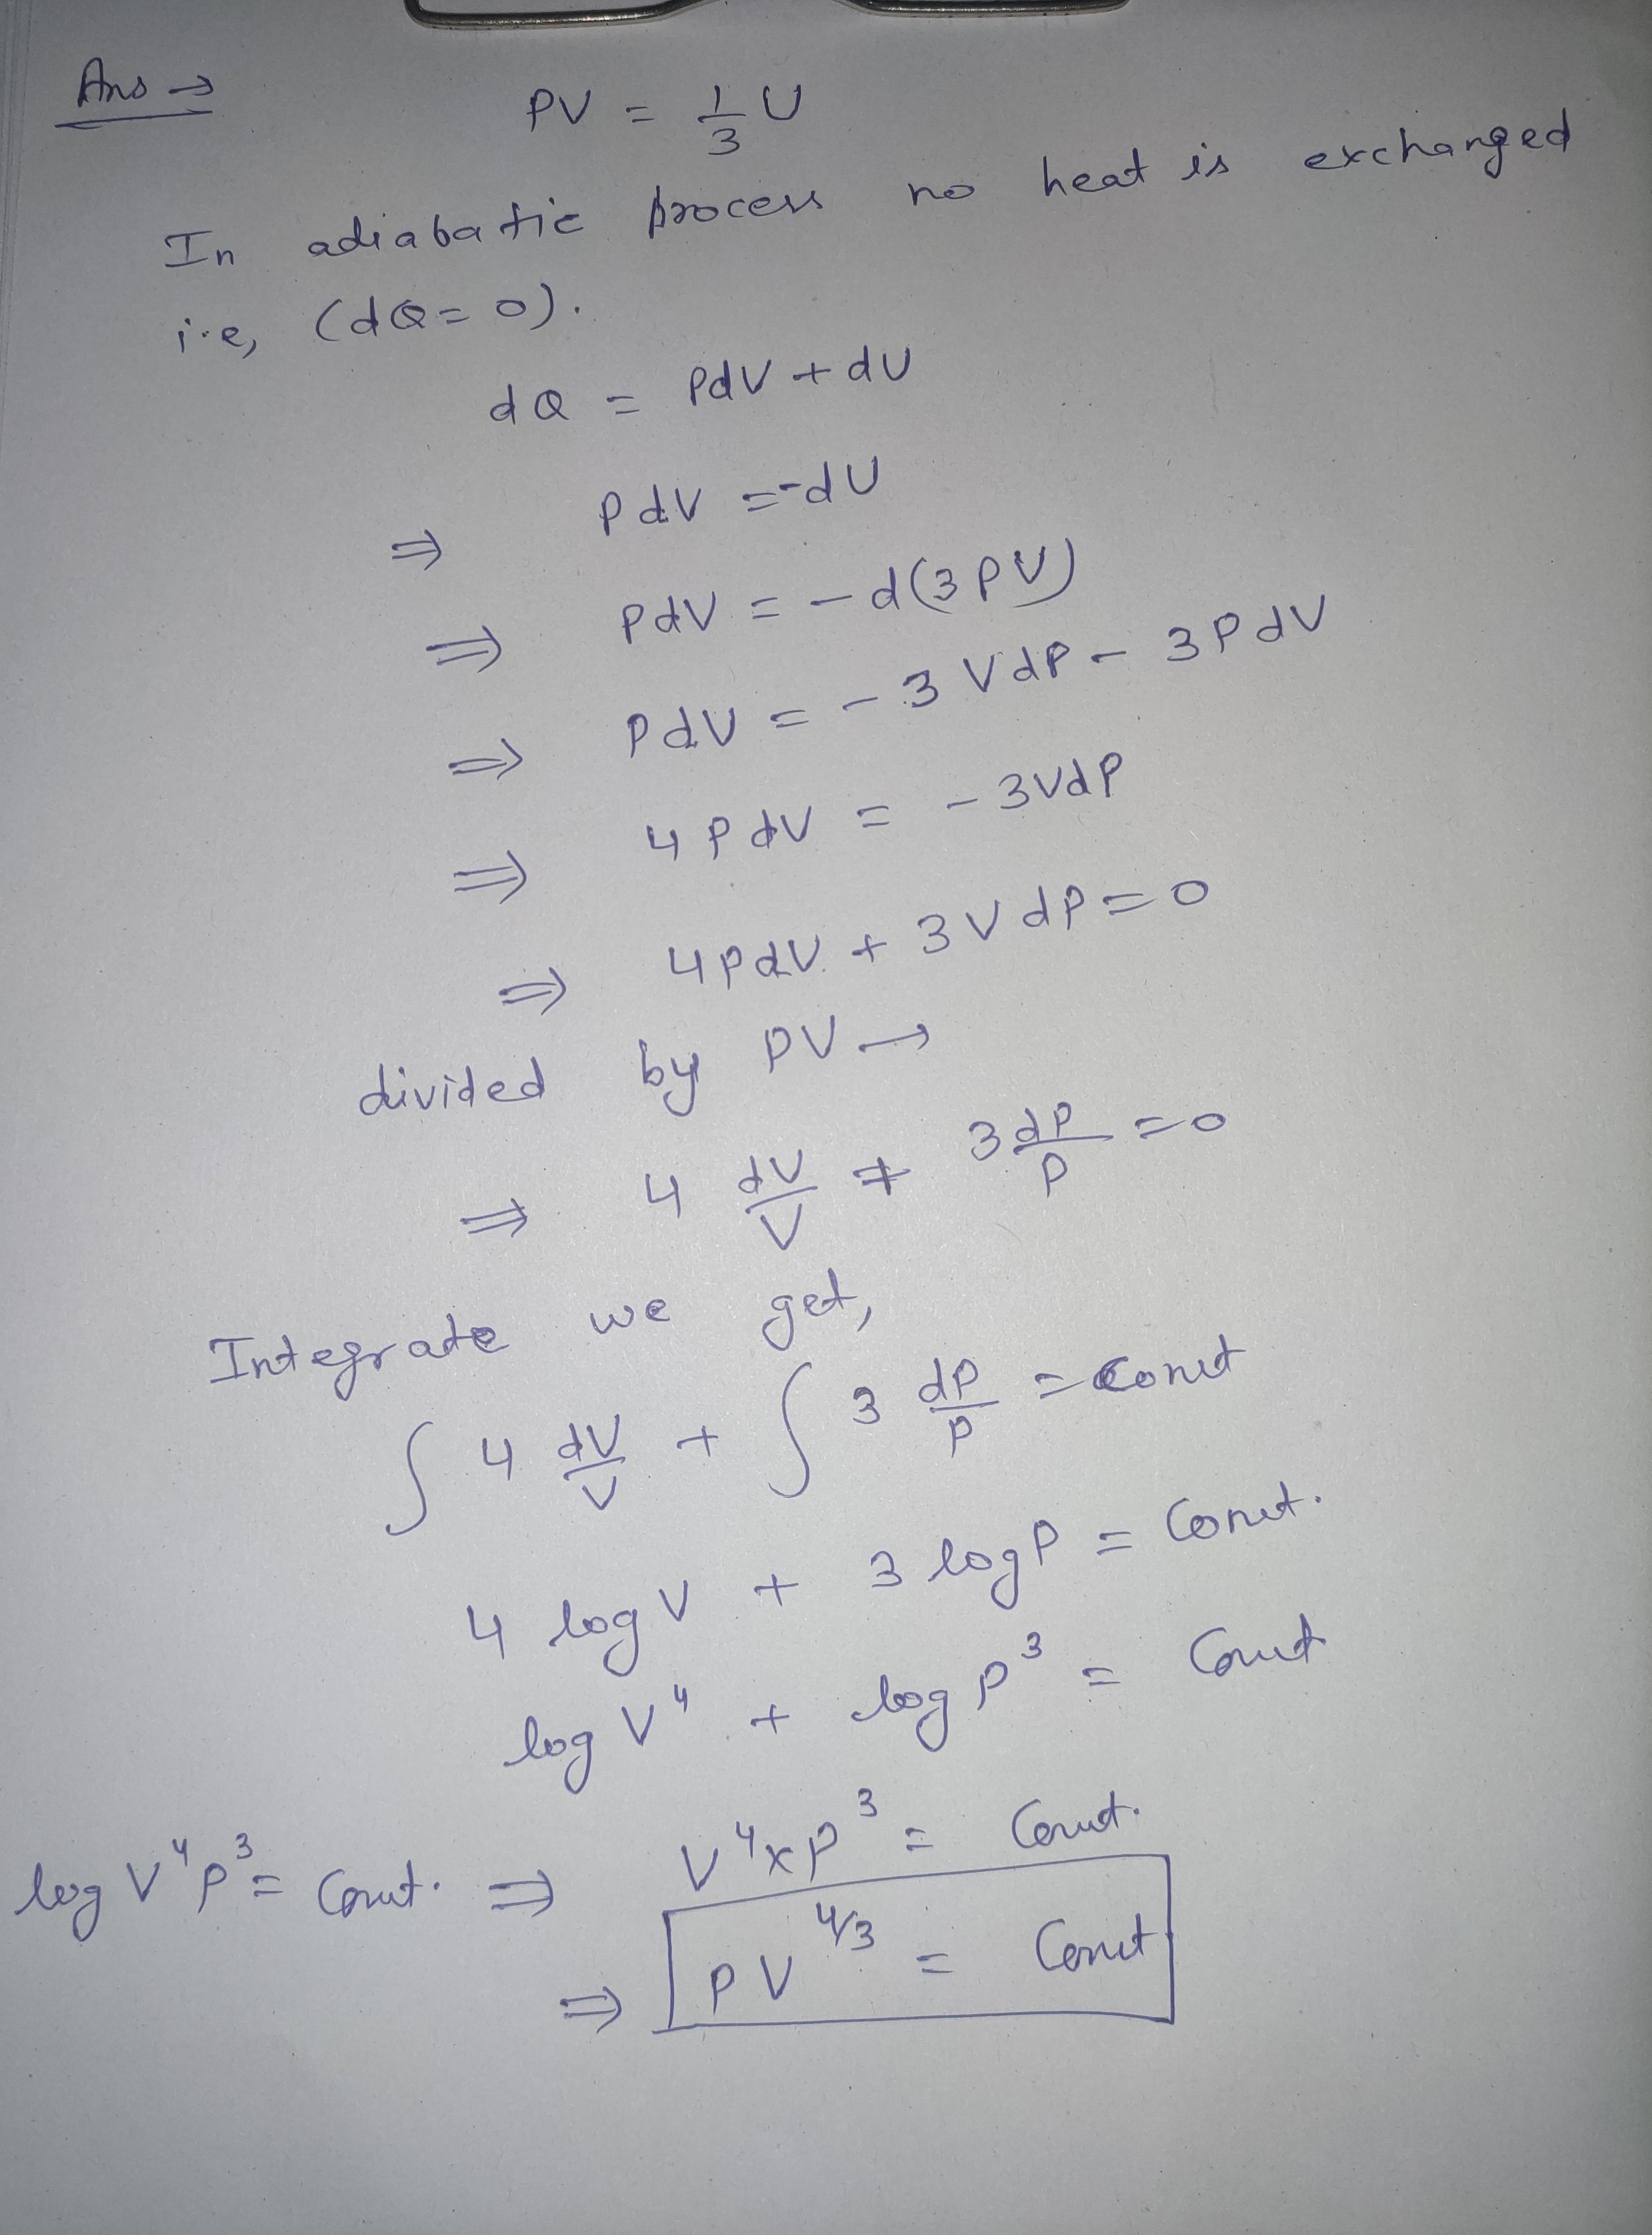 Ans →
PV = 1/3 U
In adiabatic process no heat is exchanged
i.e, (dQ = 0).
dQ = PdV + dU
⇒ PdV = -dU
⇒ PdV = - d(3PV)
⇒ PdV = - 3VdP - 3PdV
⇒ 4PdV = - 3VdP
⇒ 4PdV + 3VdP = 0
divided by PV →
⇒ 4 dV/V + 3 dP/P = 0
Integrate we get,
∫ 4 dV/V + ∫ 3 dP/P = Const
4 log V + 3 log P = Const.
log V⁴ + log P³ = Const
log V⁴P³ = Const. ⇒ V⁴ x P³ = Const.
⇒ PV^4/3 = Const